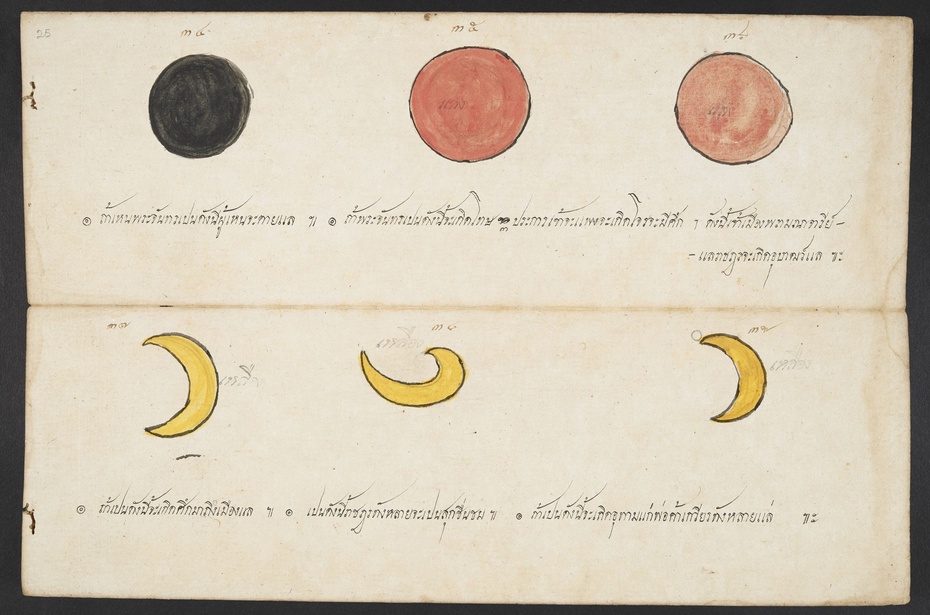 25
๓๔ ๓๕ ๓๖
แดง แดง
๏ ถ้าเหนพระจันทรเปนดังนี้ผู้เหนจะตายแล ๚ ๏ ถ้าพระจันทรเปนดังนี้จะเกิดโทษ ประการเข้าจะแพงจะเกิดโจรจะมีศึก ดังนี้เจ้าเมืองพราหมณาจารีย์ -
- แลราษฎรจะเกิดอุบาทว์แล ๚ะ
๓๗ ๓๘ ๓๙
เหลือง เหลือง เหลือง
๏ ถ้าเปนดังนี้จะเกิดศึกมาถึงเมืองแล ๚ ๏ เปนดังนี้ราษฎรทังหลายจะเปนสุกชื่นชม ๚ ๏ ถ้าเปนดังนี้จะเกิด แก่พ่อค้าเกวียรทังหลายแล ๚ะ